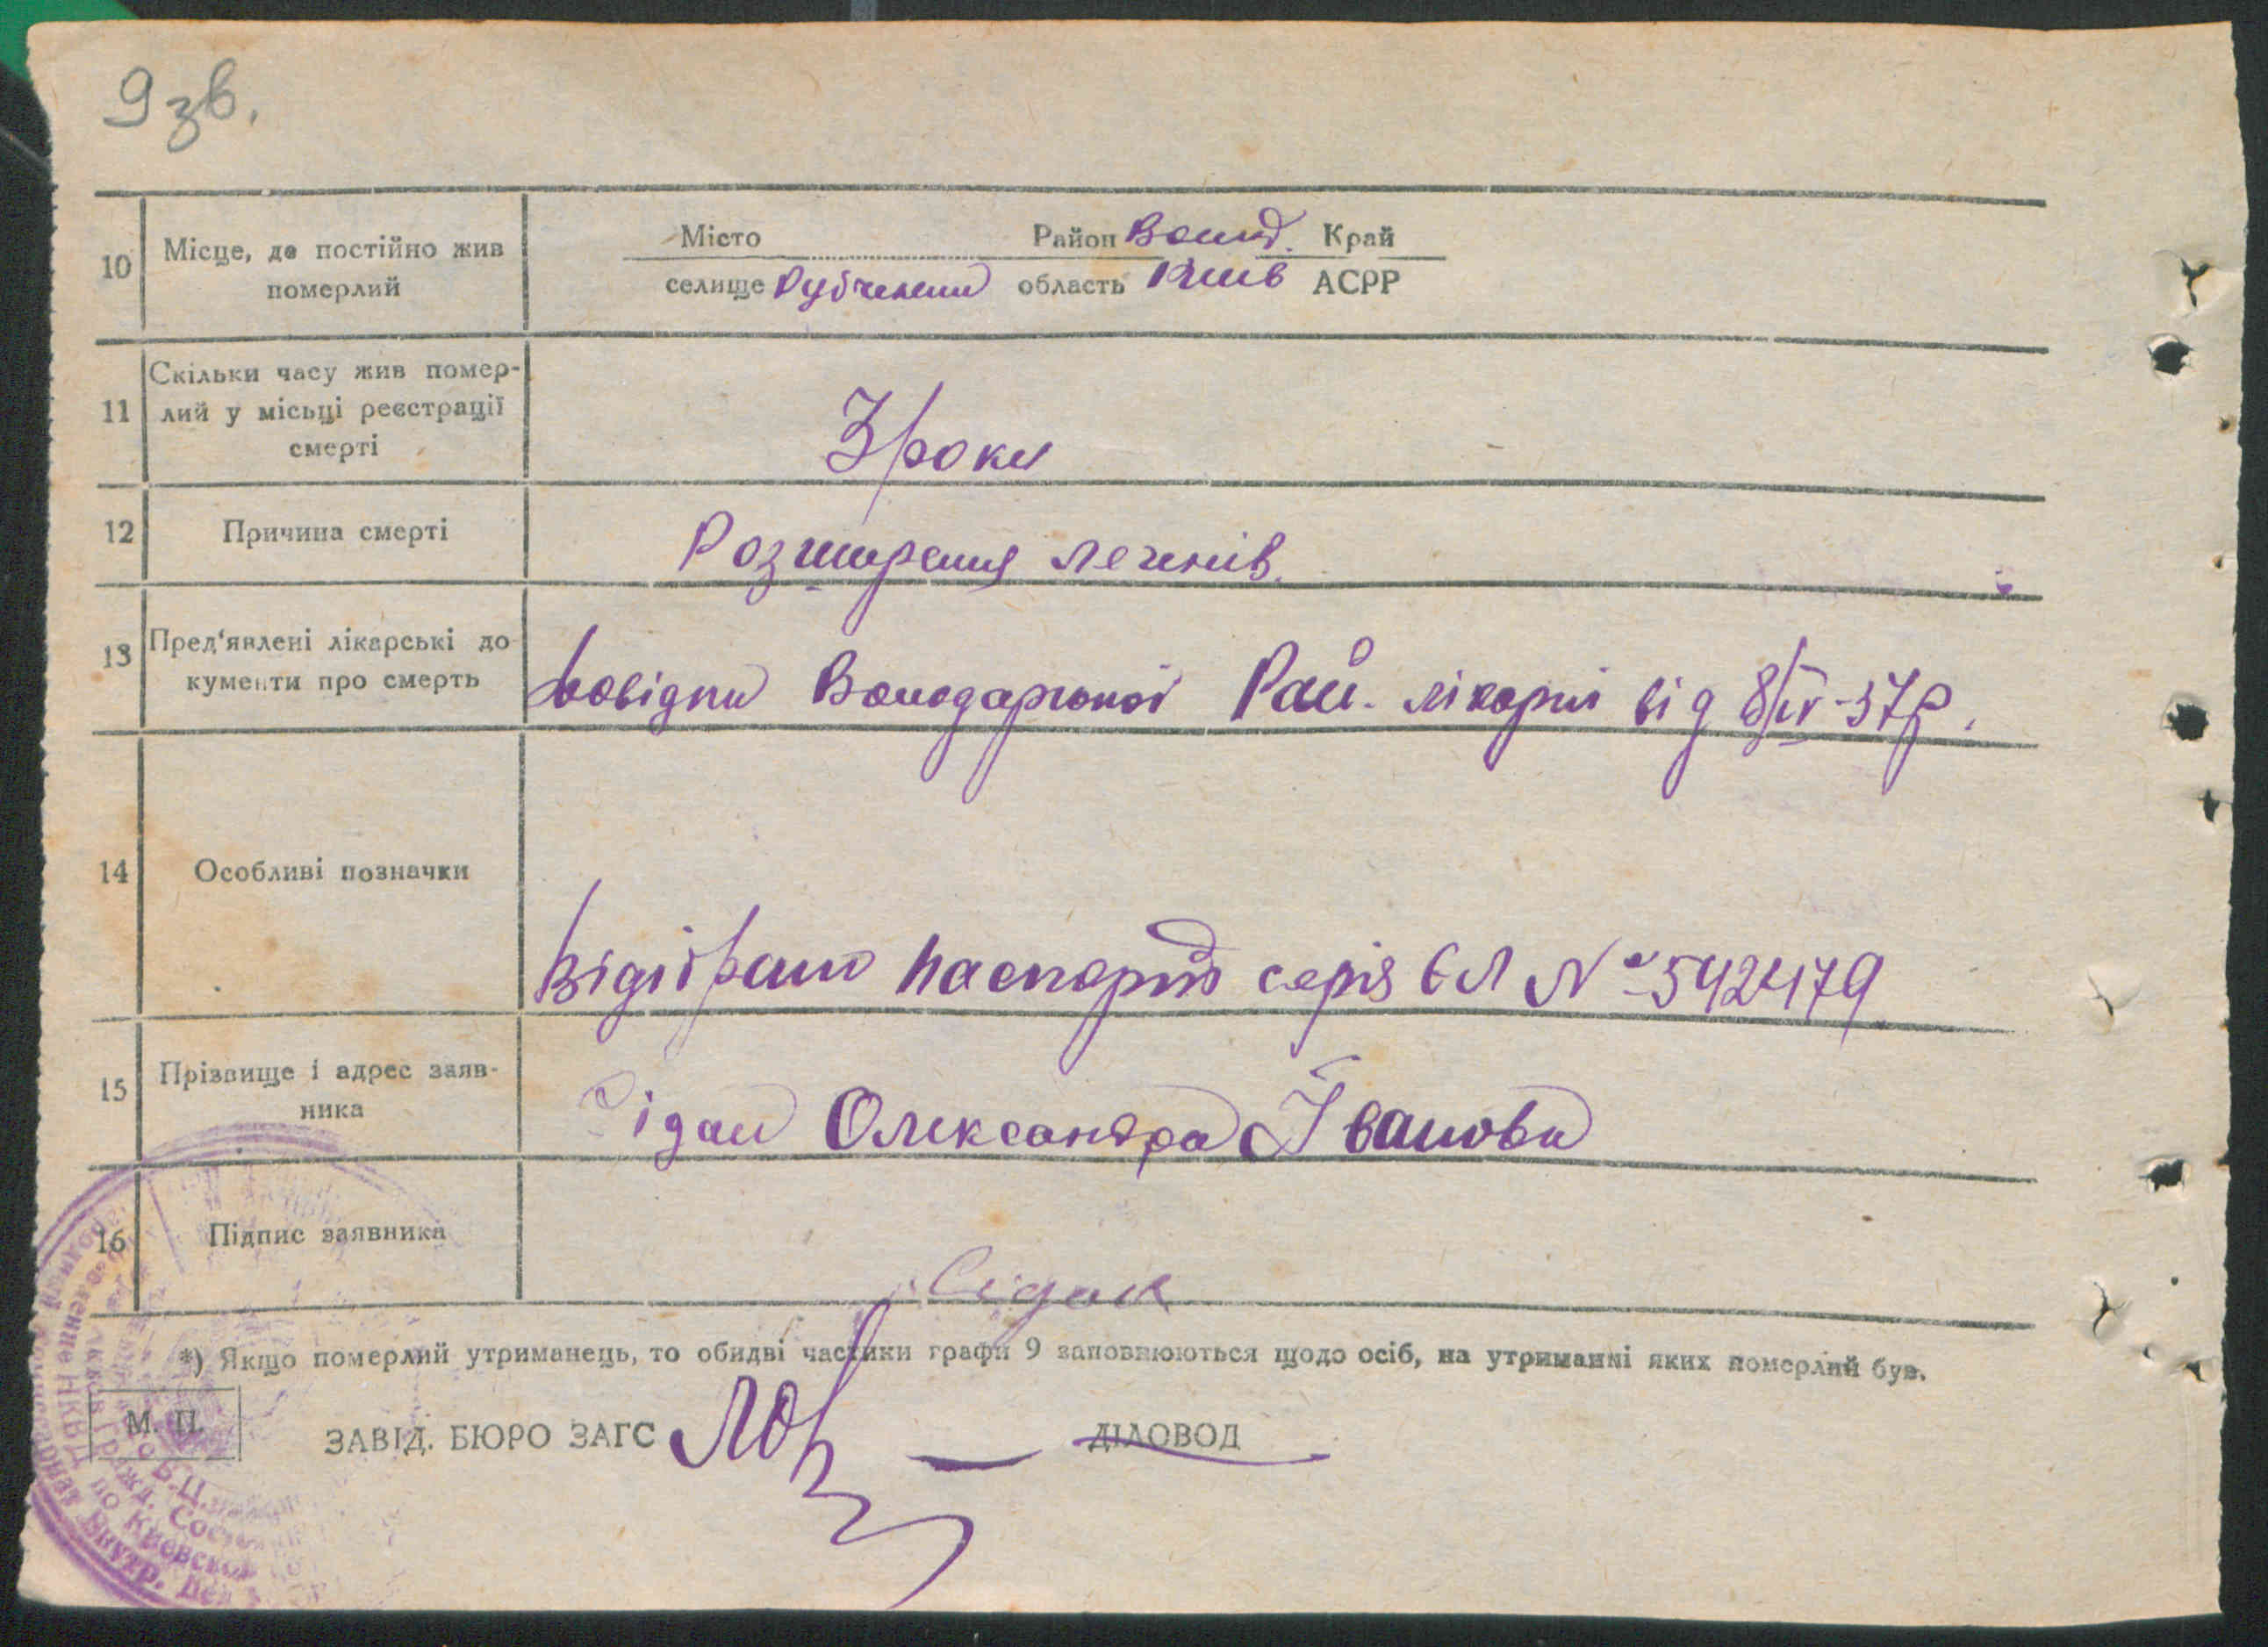 9 зв.
Місто Район Волод. Край
10 Місце, де постійно жив
померлий
селище Рубченки область Київ АСРР
11 Скільки часу жив помер-
лий у місьці реєстрації
смерті
3 роки
12 Причина смерті
Розширення легенів.
13 Пред'явлені лікарські до
кументи про смерть
Довідки Володарської Рай. лікарні від 8/IV-37р.
14 Особливі позначки
Відібрано паспорт серія ЄЛ № 542479
15 Прізвище і адрес заяв-
ника
Сідак Олександра Іванова
16 Підпис заявника
Сідак
*) Якщо померлий утриманець, то обидві частики графи 9 заповнюються щодо осіб, на утриманні яких померлий був.
М. П.
ЗАВІД. БЮРО ЗАГС ДІЛОВОД